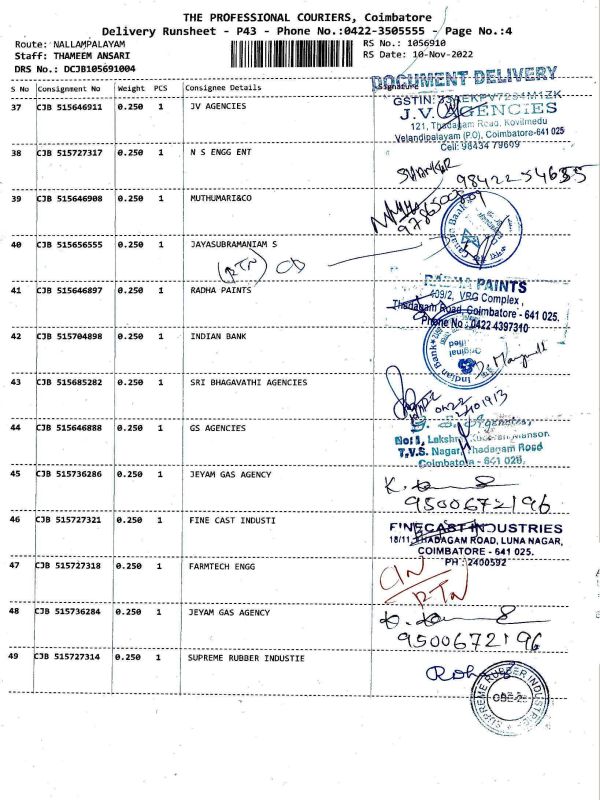 THE PROFESSIONAL COURIERS, Coimbatore
Delivery Runsheet - P43 - Phone No.:0422-3505555 - Page No.:4
Route: NALLAMPALAYAM RS No.: 1056910
Staff: THAMEEM ANSARI RS Date: 10-Nov-2022
DRS No.: DCJB105691004
DOCUMENT DELIVERY
S No Consignment No Weight PCS Consignee Details Signature
37 CJB 515646911 0.250 1 JV AGENCIES
J.V. AGENCIES
121, Thadagam Road, Kovilmedu
Velandipalayam (P.O), Coimbatore-641 025
Cell: 98434 79609
38 CJB 515727317 0.250 1 N S ENGG ENT
98422 54635
39 CJB 515646908 0.250 1 MUTHUMARI&CO
Canara Bank
40 CJB 515656555 0.250 1 JAYASUBRAMANIAM S
RTN CD
41 CJB 515646897 0.250 1 RADHA PAINTS
RADHA PAINTS
409/2, VRG Complex,
Thadagam Road, Coimbatore - 641 025.
Phone No : 0422 4397310
42 CJB 515704898 0.250 1 INDIAN BANK
Indian Bank
Original
43 CJB 515685282 0.250 1 SRI BHAGAVATHI AGENCIES
44 CJB 515646888 0.250 1 GS AGENCIES
G. S. Agencies,
T.V.S. Nagar, Thadagam Road
Coimbatore - 641 025.
45 CJB 515736286 0.250 1 JEYAM GAS AGENCY
9500672196
46 CJB 515727321 0.250 1 FINE CAST INDUSTI
FINECAST INDUSTRIES
18/11, THADAGAM ROAD, LUNA NAGAR,
COIMBATORE - 641 025.
PH : 2400592
47 CJB 515727318 0.250 1 FARMTECH ENGG
RTN
48 CJB 515736284 0.250 1 JEYAM GAS AGENCY
9500672196
49 CJB 515727314 0.250 1 SUPREME RUBBER INDUSTIE
SUPREME RUBBER INDUSTRIES